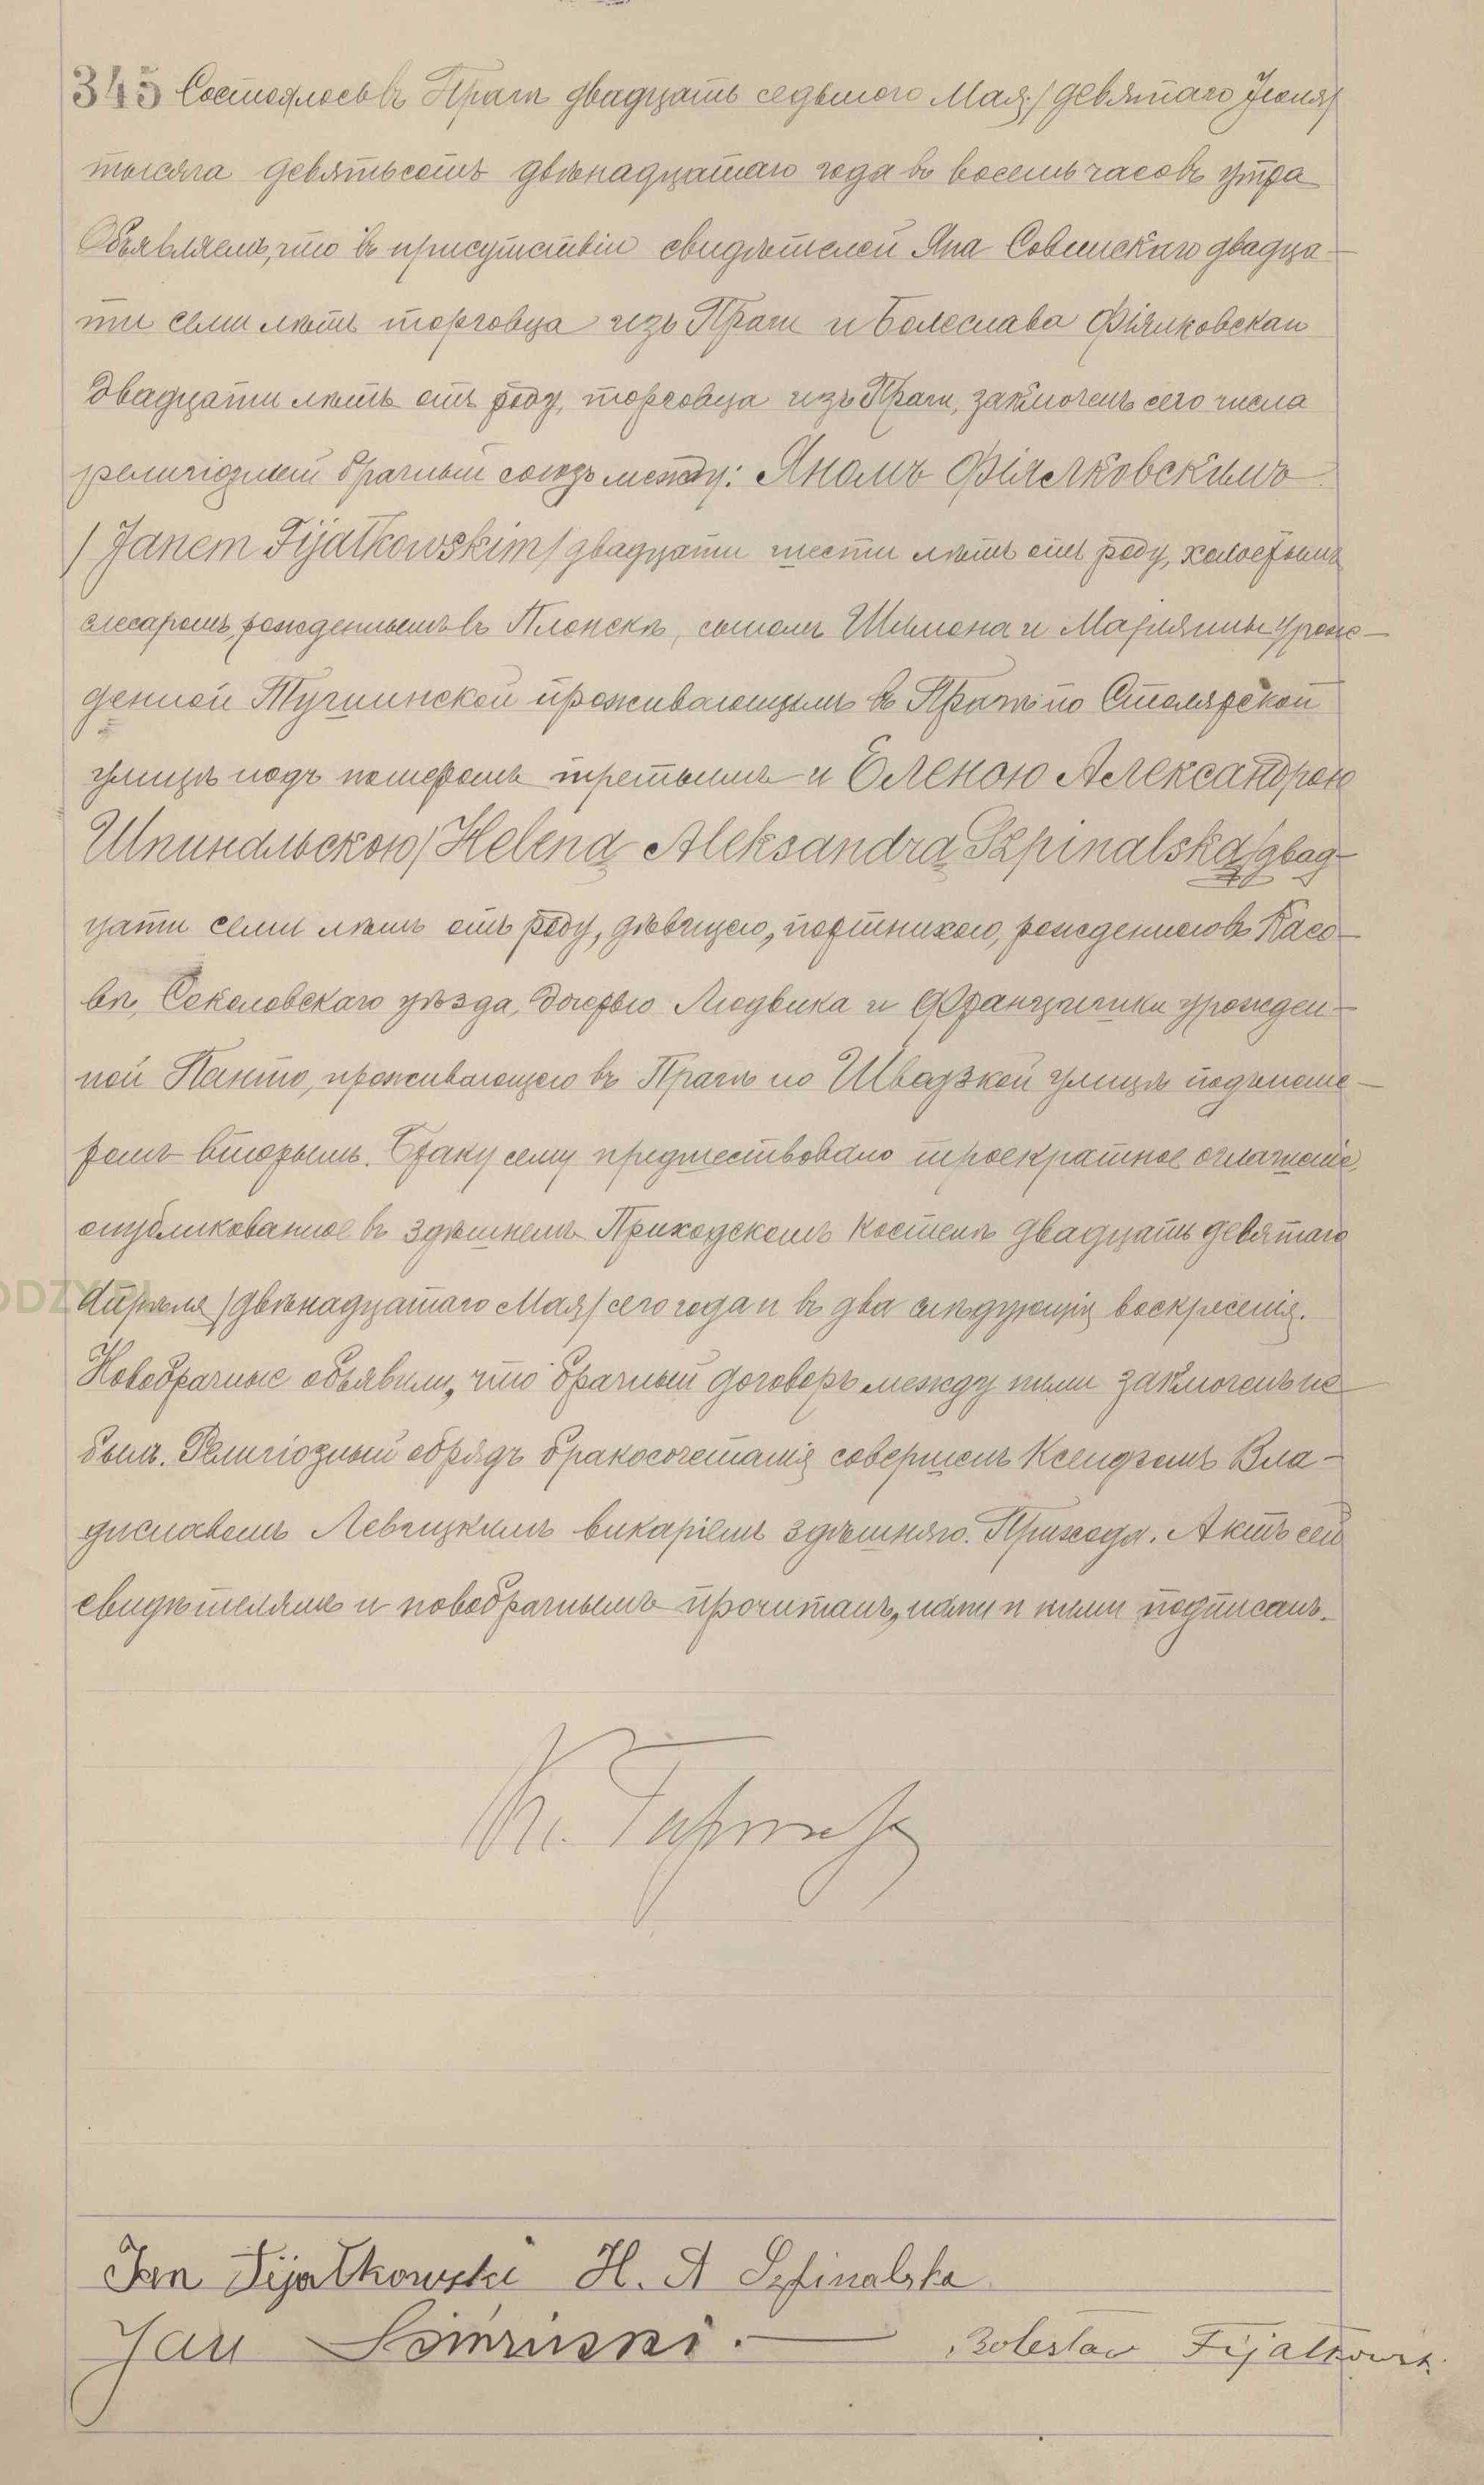 345 Состоялось въ Прагѣ двадцать седьмого Мая /девятаго Іюня/
тысяча девятьсотъ двѣнадцатаго года въ восемь часовъ утра
Объявляемъ, что въ присутствіи свидѣтелей Яна Совинскаго двадца-
ти семи лѣтъ торговца изъ Праги и Болеслава Фіялковскаи
двадцати лѣтъ отъ роду, торговца изъ Праги, заключенъ сего числа
религіозный брачный союзъ между: Яномъ Фіялковскимъ
/Janem Fijałkowskim/ двадцати шести лѣтъ отъ роду, холостымъ
слесаремъ, рожденнымъ въ Плонскѣ, сыномъ Шымона и Маріянны урож-
денной Тучшинской проживающимъ въ Прагѣ по Столярской
улицѣ подъ номеромъ третьимъ и Еленою Александрою
Шпинальскою /Helena Aleksandra Szpinalska/ двад-
цати семи лѣтъ отъ роду, дѣвицею, портнихою, рожденною въ Касо-
вѣ, Соколовскаго уѣзда, дочерью Людвика и Францишки урожден-
ной Панто, проживающею въ Прагѣ по Шведзкой улицѣ подъ номе-
ромъ вторымъ. Браку сему предшествовало троекратное оглашеніе,
опубликованное въ здѣшнемъ Приходскомъ Костелѣ двадцать девятаго
Апрѣля /двѣнадцатаго Мая/ сего года и въ два слѣдующія воскресенія.
Новобрачные объявили, что брачный договоръ между ними заключенъ не
былъ. Религіозный обрядъ бракосочетанія совершенъ Ксендзомъ Вла-
диславомъ Левицкимъ викаріемъ здѣшняго Прихода. Актъ сей
свидѣтелямъ и новобрачнымъ прочитанъ, нами и ними подписанъ.
Jan Fijałkowski H. A Szpinalska
Jan Sowinski. — Bolesław Fijałkowsk